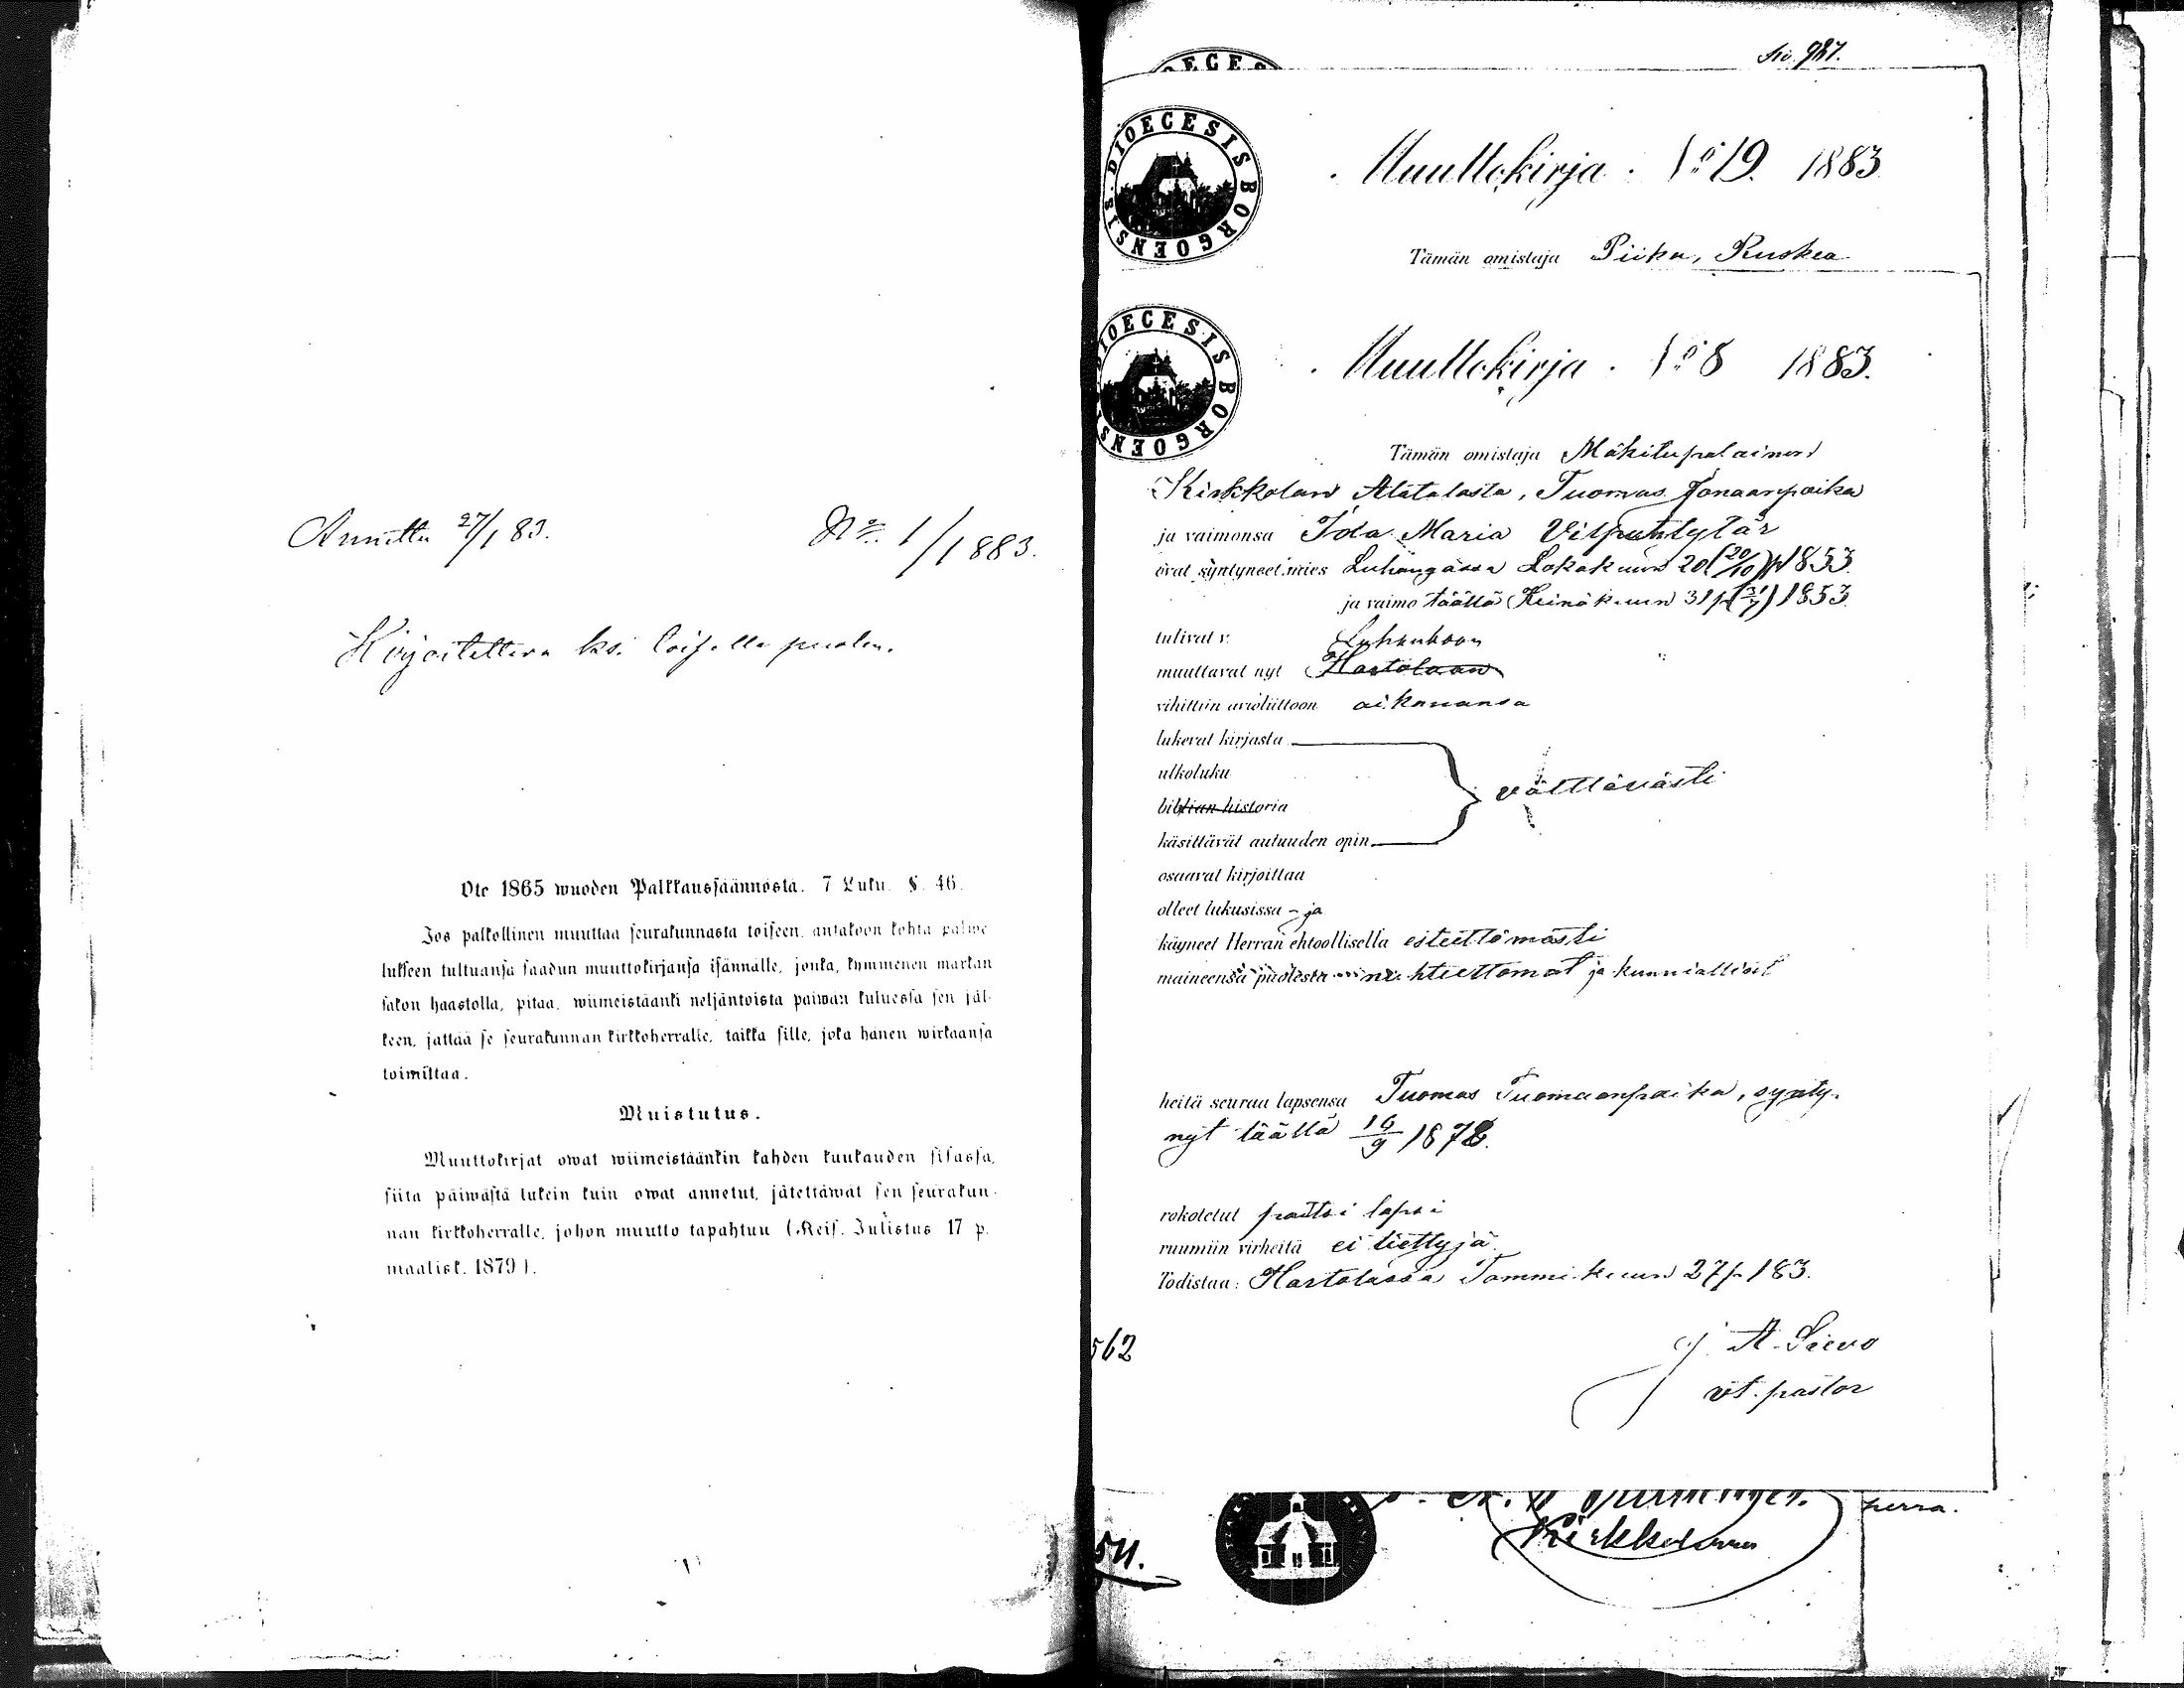 Annettu 27/1 83.
No. 1/1883.
Kirjoitettava ks. loisella puolen.
Ote 1865 wuoden Palkkaussäännöstä. 7 Luku. §. 46.
Jos palkollinen muuttaa seurakunnasta toiseen, antakoon kohta palwe-
lukseen tultuansa saadun muuttokirjansa isännälle, jonka, kymmenen markan
sakon haastolla, pitää, wiimeistäänki neljäntoista päiwän kuluessa sen jäl-
keen, jättää se seurakunnan kirkkoherralle, taikka sille, joka hänen wirkaansa
toimittaa.
Muistutus.
Muuttokirjat owat wiimeistäänkin kahden kuukauden sisässä,
siitä päiwästä lukein kuin owat annetut, jätettäwät sen seurakun-
nan kirkkoherralle, johon muutto tapahtuu (Keis. Julistus 17 p.
maalisk. 1879).
DIOECESIS BORGOENSIS
Muuttokirja. No 19. 1883
Tämän omistaja Piika, Ruskea
DIOECESIS BORGOENSIS
Muuttokirja. No 8 1883.
Tämän omistaja Mäkitupalainen
Kirkkolan Alatalosta, Tuomas Jonaanpoika
ja vaimonsa Ida Maria Vilpuntytär
ovat syntyneet mies Luhangassa Lokakuun 20 (20/10) p 1853
ja vaimo täällä Heinäkuun 31 p (31/7) 1853.
tulivat v.
muuttavat nyt Hartolaan
Luhankaan
vihittiin avioliittoon aikanansa
lukevat kirjasta
ulkoluku
välttävästi
biblian historia
käsittävät autuuden opin
osaavat kirjoittaa
olleet lukusissa - ja
käyneet Herran ehtoollisella esteettömästi
maineensa puolesta nuhteettomat ja kunnialliset
heitä seuraa lapsensa Tuomas Tuomaanpoika, synty-
nyt täällä 16/9 1878.
rokotetut paitsi lapsi
ruumiin virheitä ei tiettyjä
Todistaa: Hartolassa Tammikuun 27 p 183.
562
A. Sievo
vt. pastor
Kirkkoherra